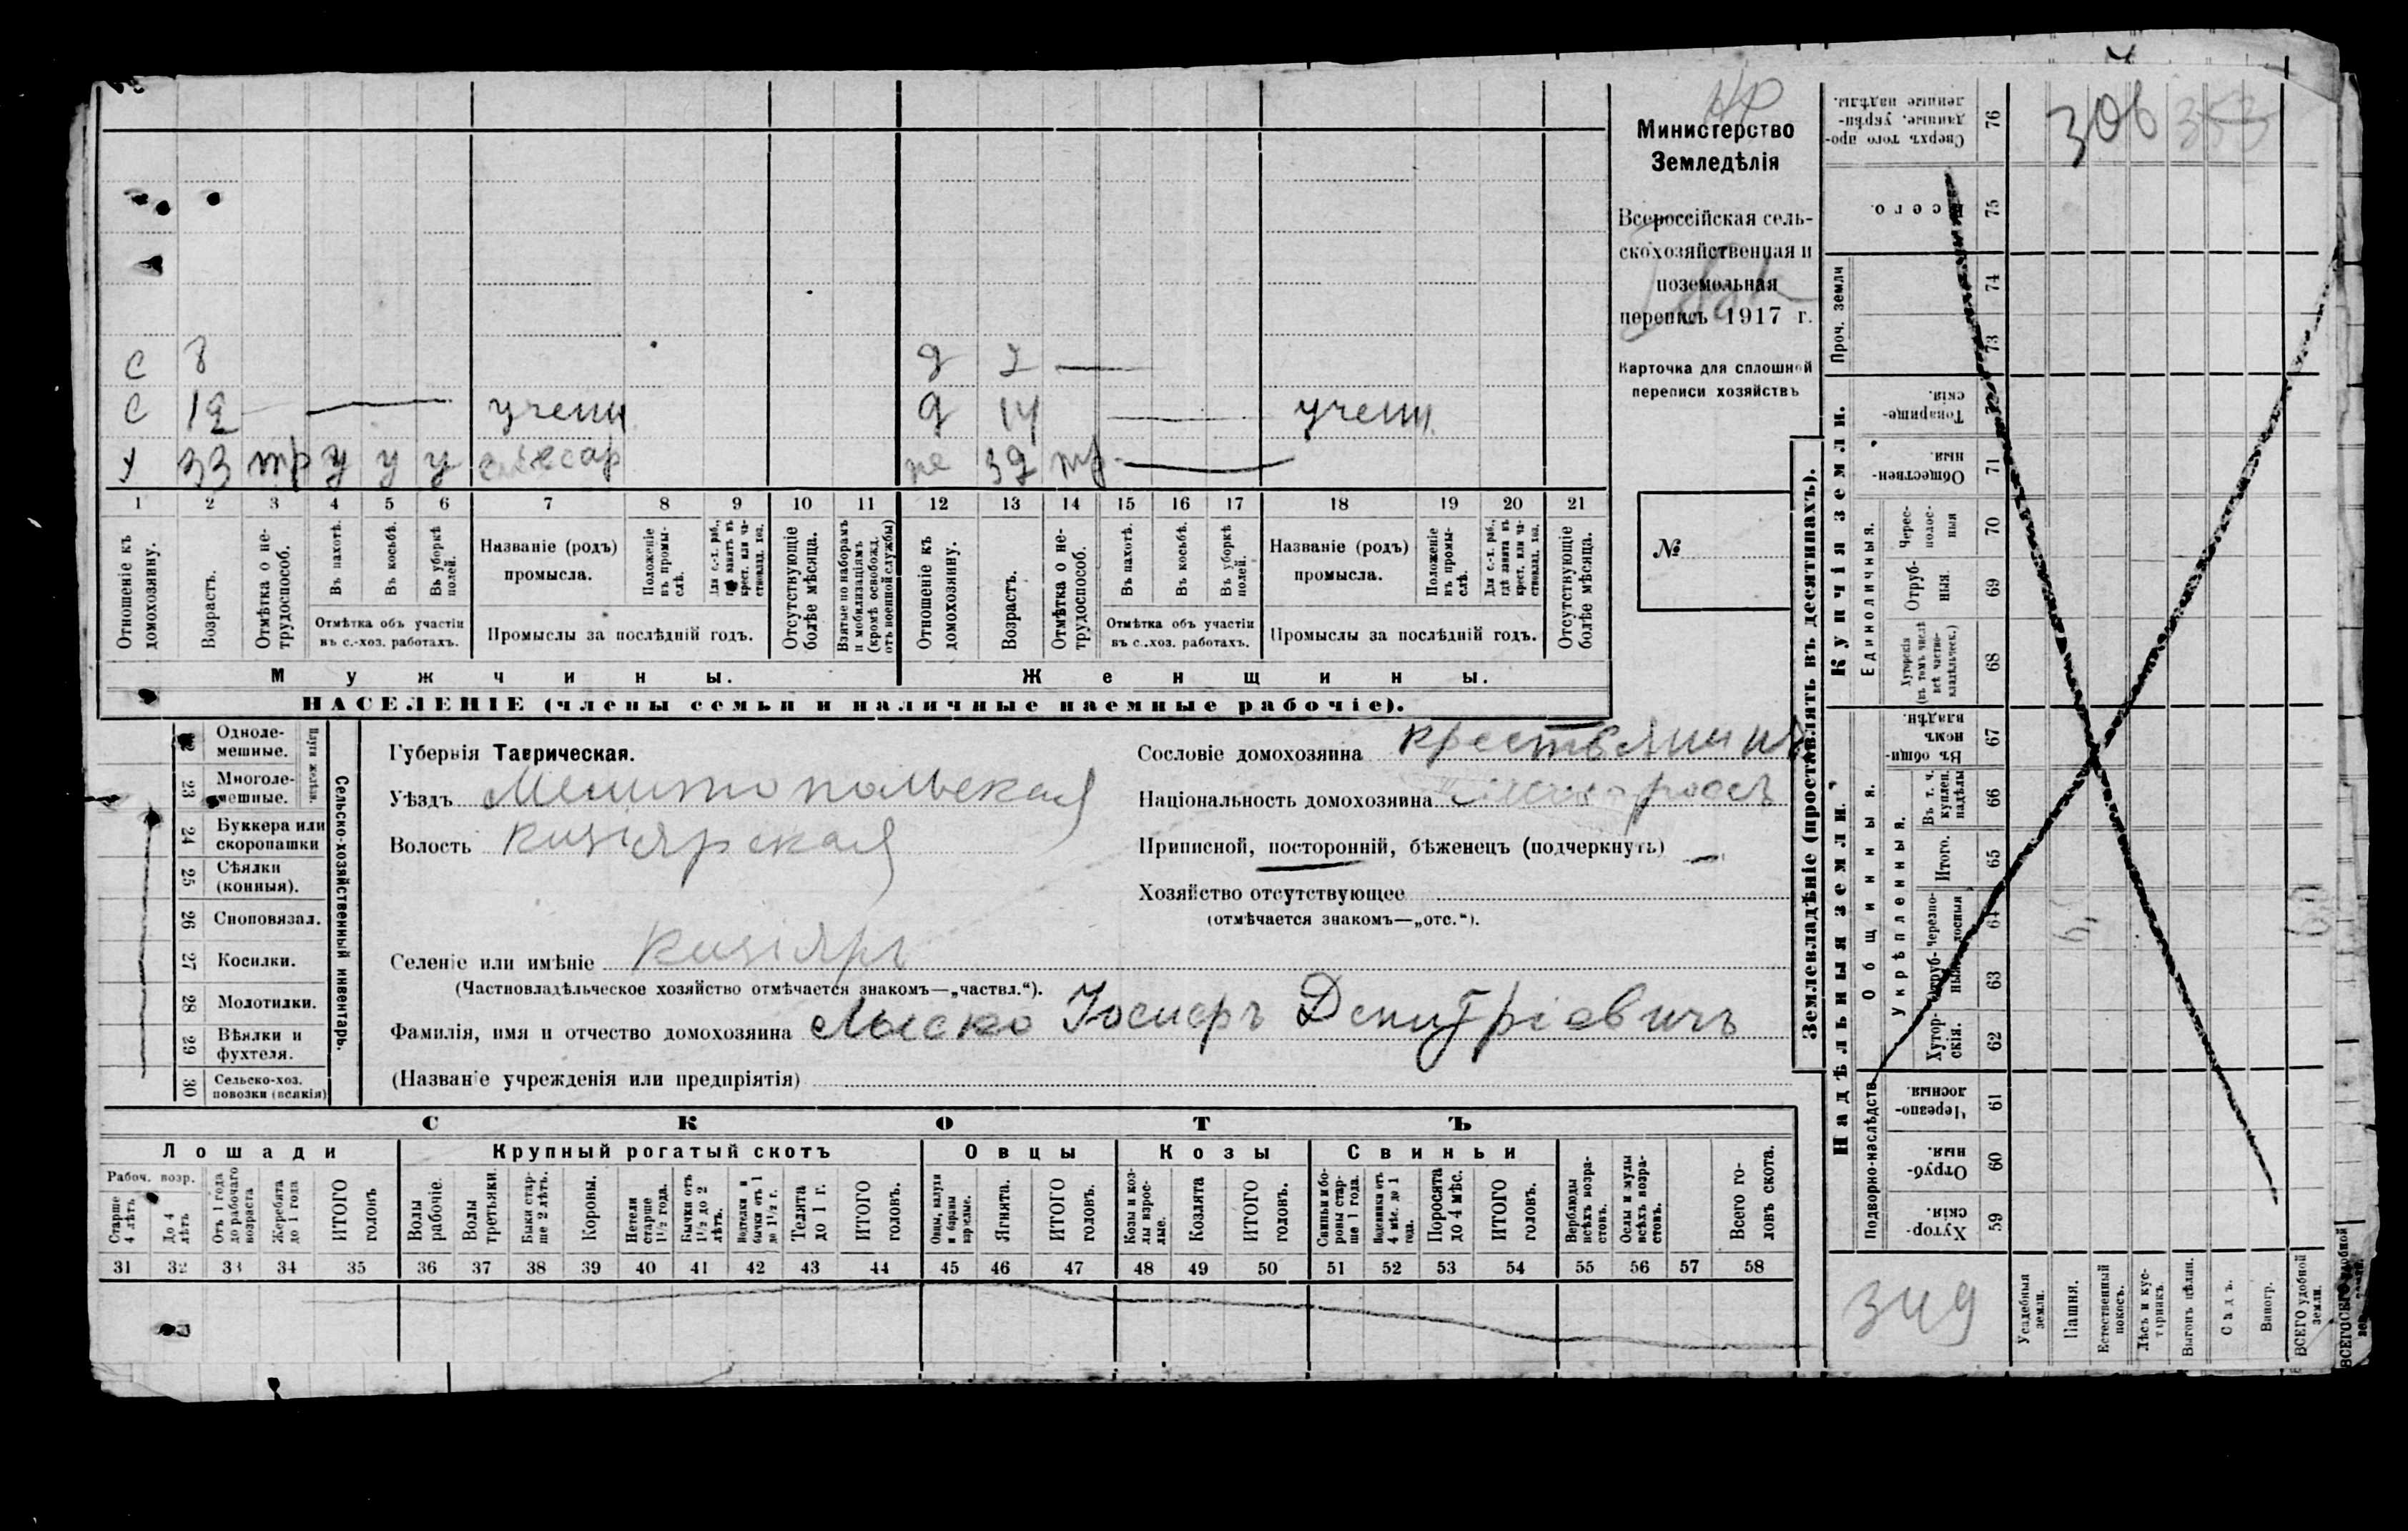 Министерство
Земледѣлія
Всероссійская сель-
скохозяйственная и
поземельная
перепись 1917 г.
Карточка для сплошной
переписи хозяйствъ
№
306 353
С 8
д 7
С 12 учени
д 14 учени
33 тр у у у слесар
же 32 тр
1 2 3 4 5 6 7 8 9 10 11 12 13 14 15 16 17 18 19 20 21
Отношеніе къ домохозяину.
Возрастъ.
Отмѣтка о не-трудоспособ.
Въ пахотѣ.
Въ косьбѣ.
Въ уборкѣ полей.
Отмѣтка объ участіи въ с.-хоз. работахъ.
Названіе (родъ) промысла.
Положеніе въ промы-слѣ.
Для с.-х. раб., гдѣ занятъ въ крест. или ча-стновлад. хоз.
Промыслы за послѣдній годъ.
Отсутствующіе болѣе мѣсяца.
Взятые по наборамъ и мобилизаціямъ (кромѣ освобожд. отъ военной службы)
Отношеніе къ домохозяину.
Возрастъ.
Отмѣтка о не-трудоспособ.
Въ пахотѣ.
Въ косьбѣ.
Въ уборкѣ полей.
Отмѣтка объ участіи въ с.-хоз. работахъ.
Названіе (родъ) промысла.
Положеніе въ промы-слѣ.
Для с.-х. раб., гдѣ занята въ крест. или ча-стновлад. хоз.
Промыслы за послѣдній годъ.
Отсутствующіе болѣе мѣсяца.
Мужчины. Женщины.
НАСЕЛЕНІЕ (члены семьи и наличные наемные рабочіе).
Сельско-хозяйственный инвентарь.
Плуги желѣзн.
Одноле-мешные.
23 Многоле-мешные.
24 Буккера или скоропашки
25 Сѣялки (конныя).
26 Сноповязал.
27 Косилки.
28 Молотилки.
29 Вѣялки и фухтеля.
30 Сельско-хоз. повозки (всякія)
Губернія Таврическая.
Уѣздъ Мелитопольская
Волость Кизіярская
Селеніе или имѣніе Кизіяръ
(Частновладѣльческое хозяйство отмѣчается знакомъ—„частвл.“).
Фамилія, имя и отчество домохозяина Лыско Іосифъ Демитріевичъ
(Названіе учрежденія или предпріятія)
Сословіе домохозяина крестьянинъ
Національность домохозяина
Приписной, посторонній, бѣженецъ (подчеркнуть)
Хозяйство отсутствующее
(отмѣчается знакомъ—„отс.“).
СКОТЪ
Лошади Крупный рогатый скотъ Овцы Козы Свиньи
Рабоч. возр.
Старше 4 лѣтъ
До 4 лѣтъ
Отъ 1 года до рабочаго возраста
Жеребята до 1 года
ИТОГО головъ
Волы рабочіе.
Волы третьяки.
Быки стар-ше 2 лѣтъ.
Коровы.
Нетели старше 1½ года.
Бычки отъ 1½ до 2 лѣтъ.
Телята до 1 г.
ИТОГО головъ.
Овцы, валухи и бараны взрослые.
Ягнята.
ИТОГО головъ.
Козы и коз-лы взрос-лые.
Козлята
ИТОГО головъ.
Свиньи и бо-ровы стар-ше 1 года.
Поросята до 4 мѣс.
ИТОГО головъ.
Верблюды всѣхъ возра-стовъ.
Ослы и мулы всѣхъ возра-стовъ.
Всего го-ловъ скота.
31 32 33 34 35 36 37 38 39 40 41 42 43 44 45 46 47 48 49 50 51 52 53 54 55 56 57 58
Землевладѣніе (проставлять въ десятинахъ).
Купчія земли.
Надѣльныя земли.
Сверхъ того про-данные, укрѣп-ленные надѣлы. 76
Всего. 75
Проч. земли 74 73
Товарище-скія.
Обществен-ныя. 71
Единоличныя.
Черес-полос-ныя 70
Отруб-ныя. 69
Хуторскія (въ томъ числѣ всѣ частно-владѣльческ.) 68
Общинныя.
Въ общи-номъ владѣн. 67
Укрѣпленныя.
Въ т. ч. куплен. надѣлы 66
Итого. 65
Черезпо-лосныя 64
Отруб-ныя 63
Хутор-скія. 62
Подворно-наслѣдств
Черезпо-лосныя 61
Отруб-ныя. 60
Хутор-скія. 59
349
Усадебныя земли.
Пашня.
Естественный покосъ.
Лѣсъ и кус-тарникъ.
Выгонъ цѣлин.
Садъ.
Виногр.
ВСЕГО удобной земли.